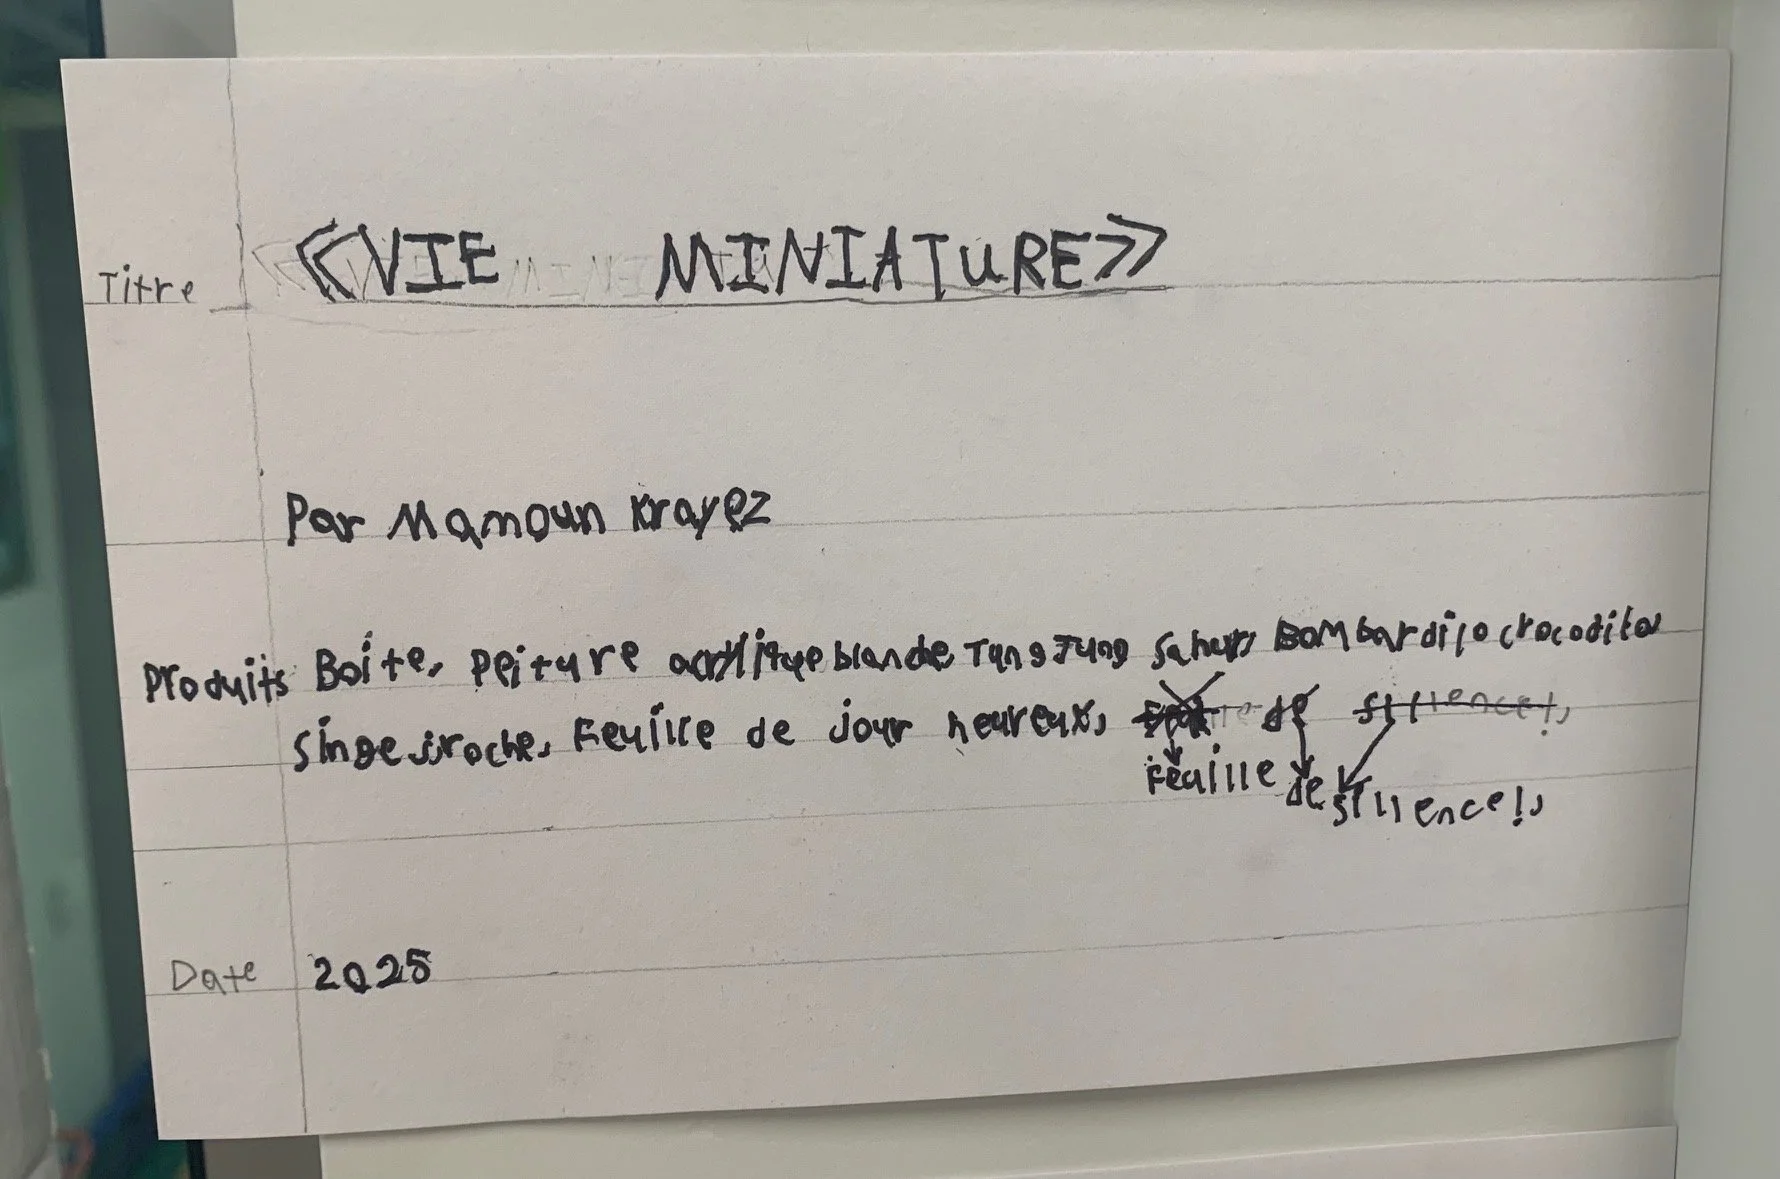 Titre «VIE MINIATURE»
Par Mamoun Krayez
Produits Boîte, peiture acrylique blande, Tung Tung Sahur, BOMbardilo crocodilo,
singe broche, Feuille de jour heureux, de sillence!,
Feuille de sillence!,
Date 2025